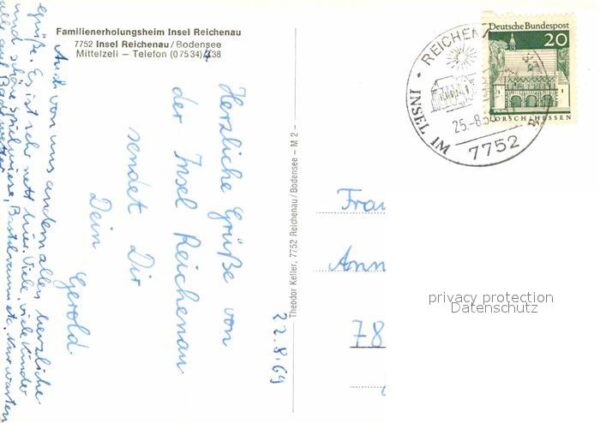 Familienerholungsheim Insel Reichenau
7752 Insel Reichenau/Bodensee
Mittelzell – Telefon (07534) 438
Herzliche Grüße von
der Insel Reichenau
sendet Dir
Dein
Gerold
Auch von uns andern allen herzliche
Grüße. Es ist sehr nett hier. Viele, viele Kinder
und schöne Spielwiese, Bastelraum etc. Nur warten
alle auf Badewetter
22.8.69
Theodor Keller, 7752 Reichenau/Bodensee – M 2 –
Frau
Ann
78
Deutsche Bundespost
20
LORSCH/HESSEN
REICHENAU
INSEL IM
25.-8.
7752
privacy protection
Datenschutz